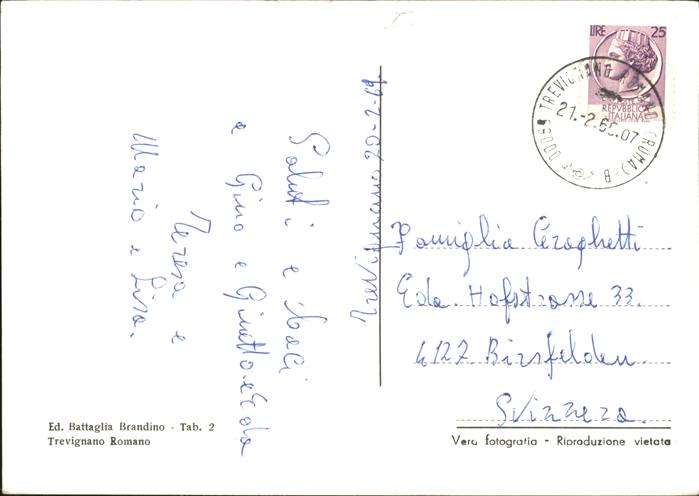 Trevignano 20-2-69.
Saluti e baci
a Gino e Ginetto e Eda
Teresa e
Mario e Lisa.
LIRE 25
REPUBBLICA
ITALIANA
TREVIGNANO ROMANO (ROMA) B
21.-2.69.07
Famiglia
Eda. Hofstrasse 33.
4127 Birsfelden.
Svizzera.
Ed. Battaglia Brandino - Tab. 2
Trevignano Romano
Vera fotografia - Riproduzione vietata